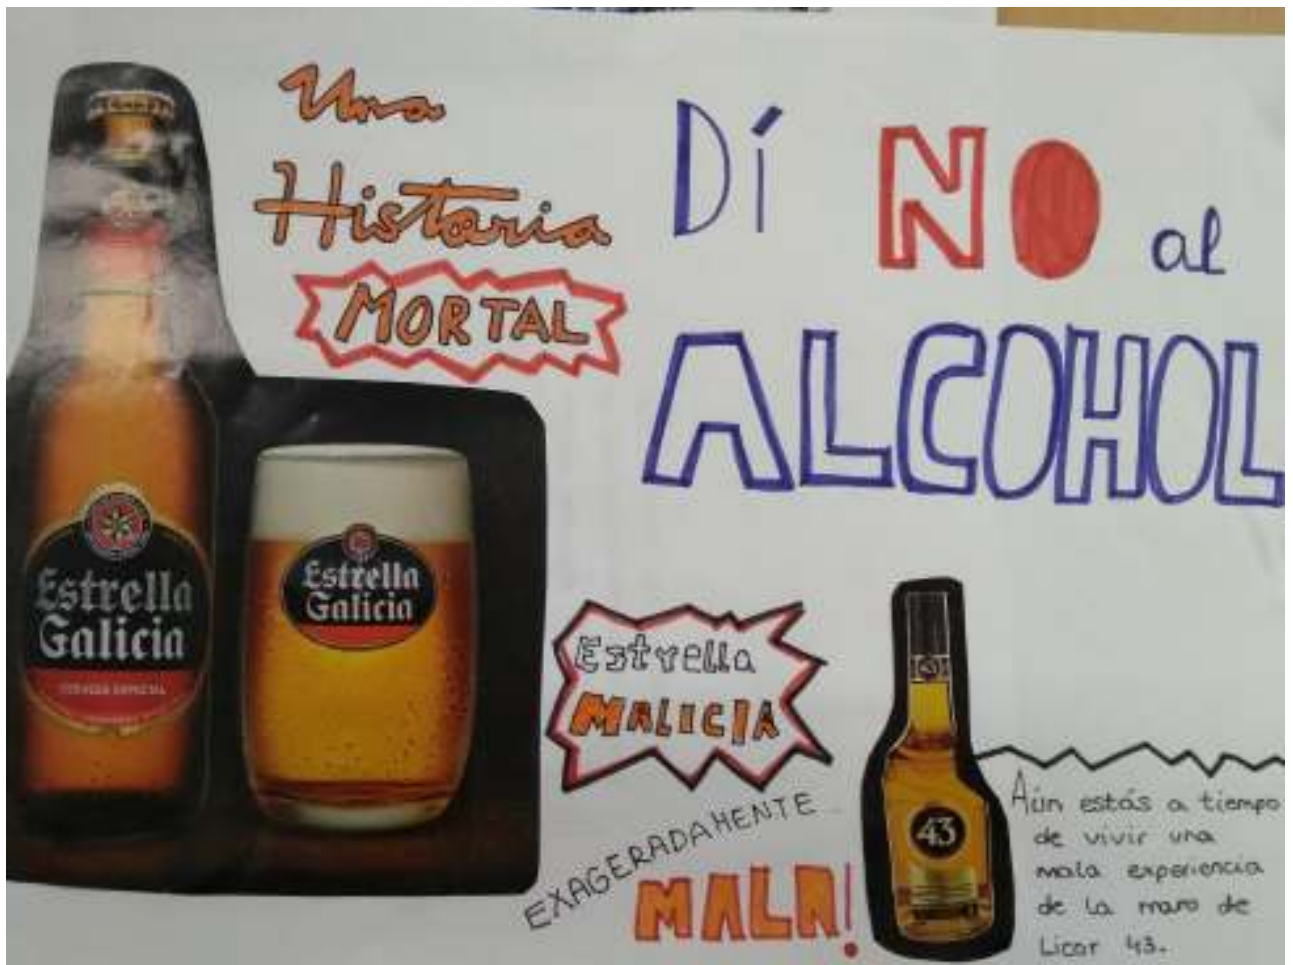 Una
Historia
MORTAL
DÍ NO al
ALCOHOL
Estrella
Galicia
CERVEZA ESPECIAL
Estrella
Galicia
Estrella
MALICIA
EXAGERADAMENTE
MALA!
43
Aún estás a tiempo
de vivir una
mala experiencia
de la mano de
Licor 43.